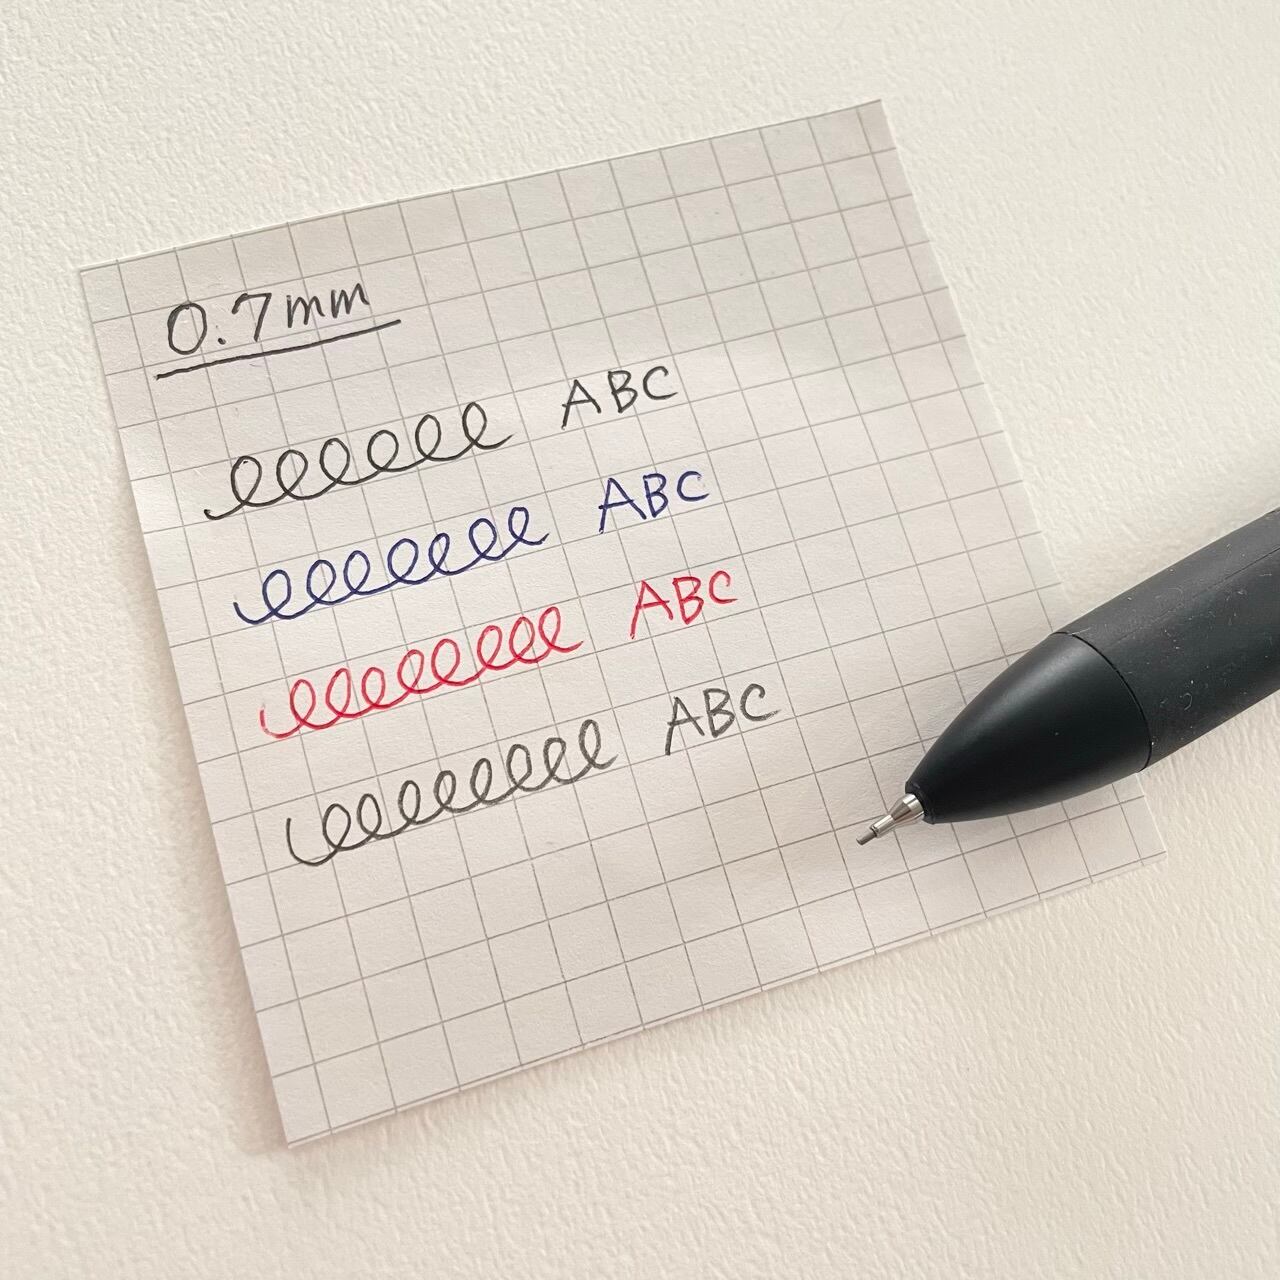 0.7mm
ABC
ABC
ABC
ABC